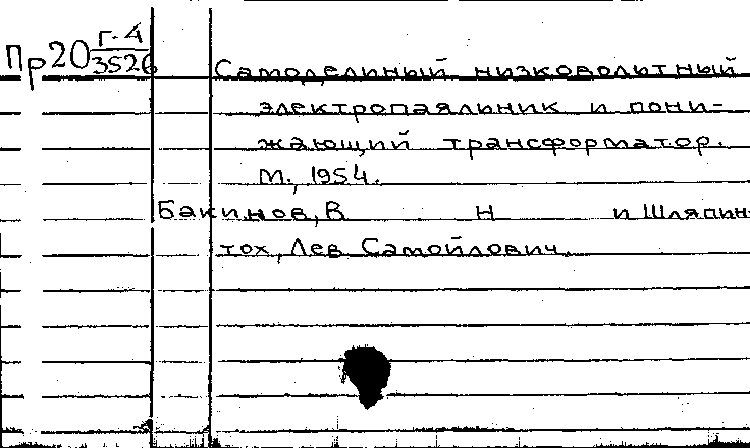 Пр20 Г-4/3526
Самодельный низковольтный
электропаяльник и пони-
жающий трансформатор.
М., 1954.
Бакинов, В Н и Шляпин-
тох, Лев Самойлович.